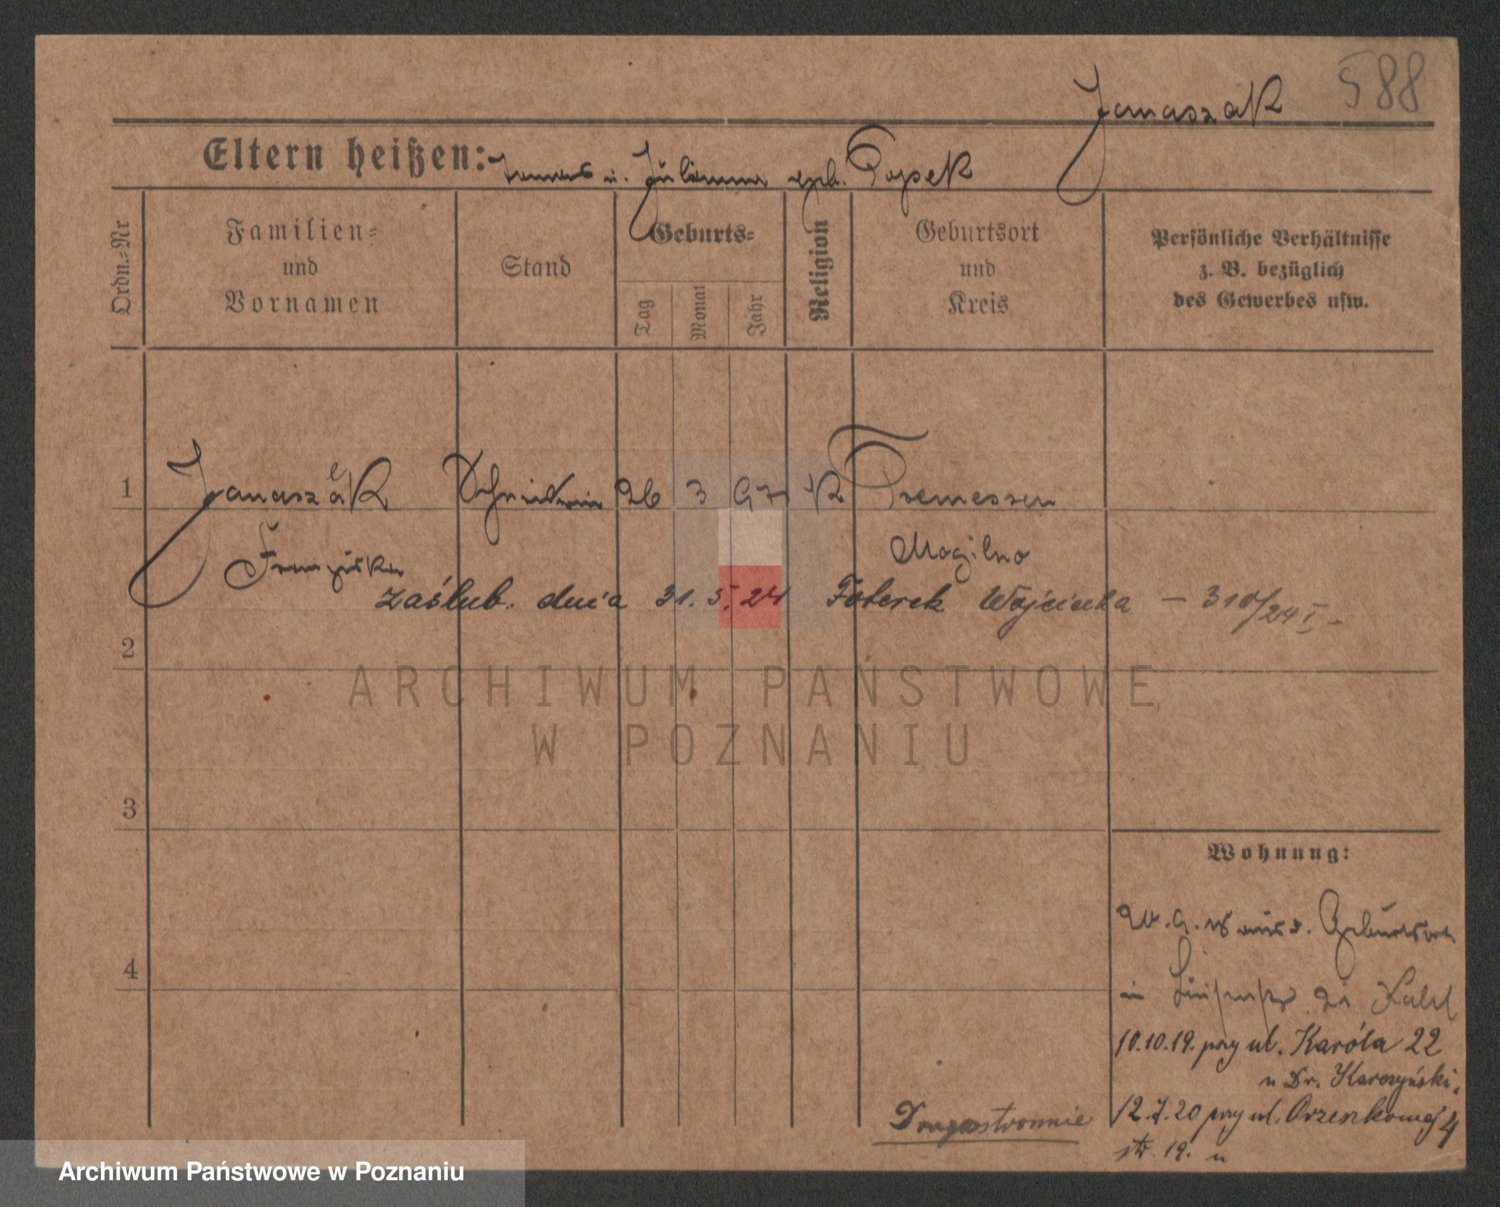 588
Janaszak
Eltern heißen: Thomas u. Julianna geb. Popek
Ordn.-Nr
Familien-
und
Vornamen
Stand
Geburts-
Tag
Monat
Jahr
Religion
Geburtsort
und
Kreis
Persönliche Verhältnisse
z. B. bezüglich
des Gewerbes usw.
1 Janaszak 26 3 97 K Tremessen
Franziska Mogilno
zaślub. dnia 31. 5. 24 Foterek Wojciecha — 310/24 I -
2
ARCHIWUM PAŃSTWOWE
W POZNANIU
3
Wohnung:
aus d. Geburtsort
4
in
10.10.19. przy ul. Karola 22
u Dr. Karczyński.
Drugostronnie
12.7.20 przy ul. Orzeszkowej 4
str. 19. u
Archiwum Państwowe w Poznaniu